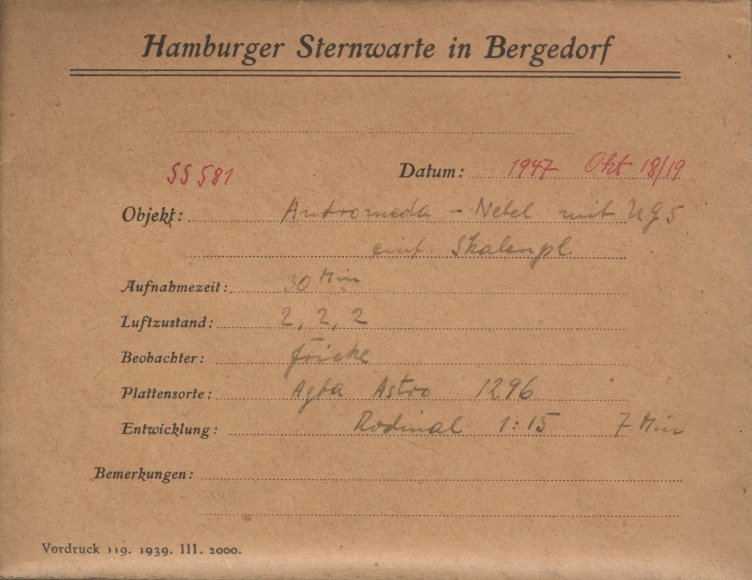 Hamburger Sternwarte in Bergedorf
SS 581 Datum: 1947 Okt 18/19
Objekt: Andromeda - Nebel mit UG5
einf. Skalenpl.
Aufnahmezeit: 30 Min
Luftzustand: 2, 2, 2
Beobachter: Fricke
Plattensorte: Agfa Astro 1296
Entwicklung: Rodinal 1:15 7 Min
Bemerkungen:
Vordruck 119. 1939. III. 2000.